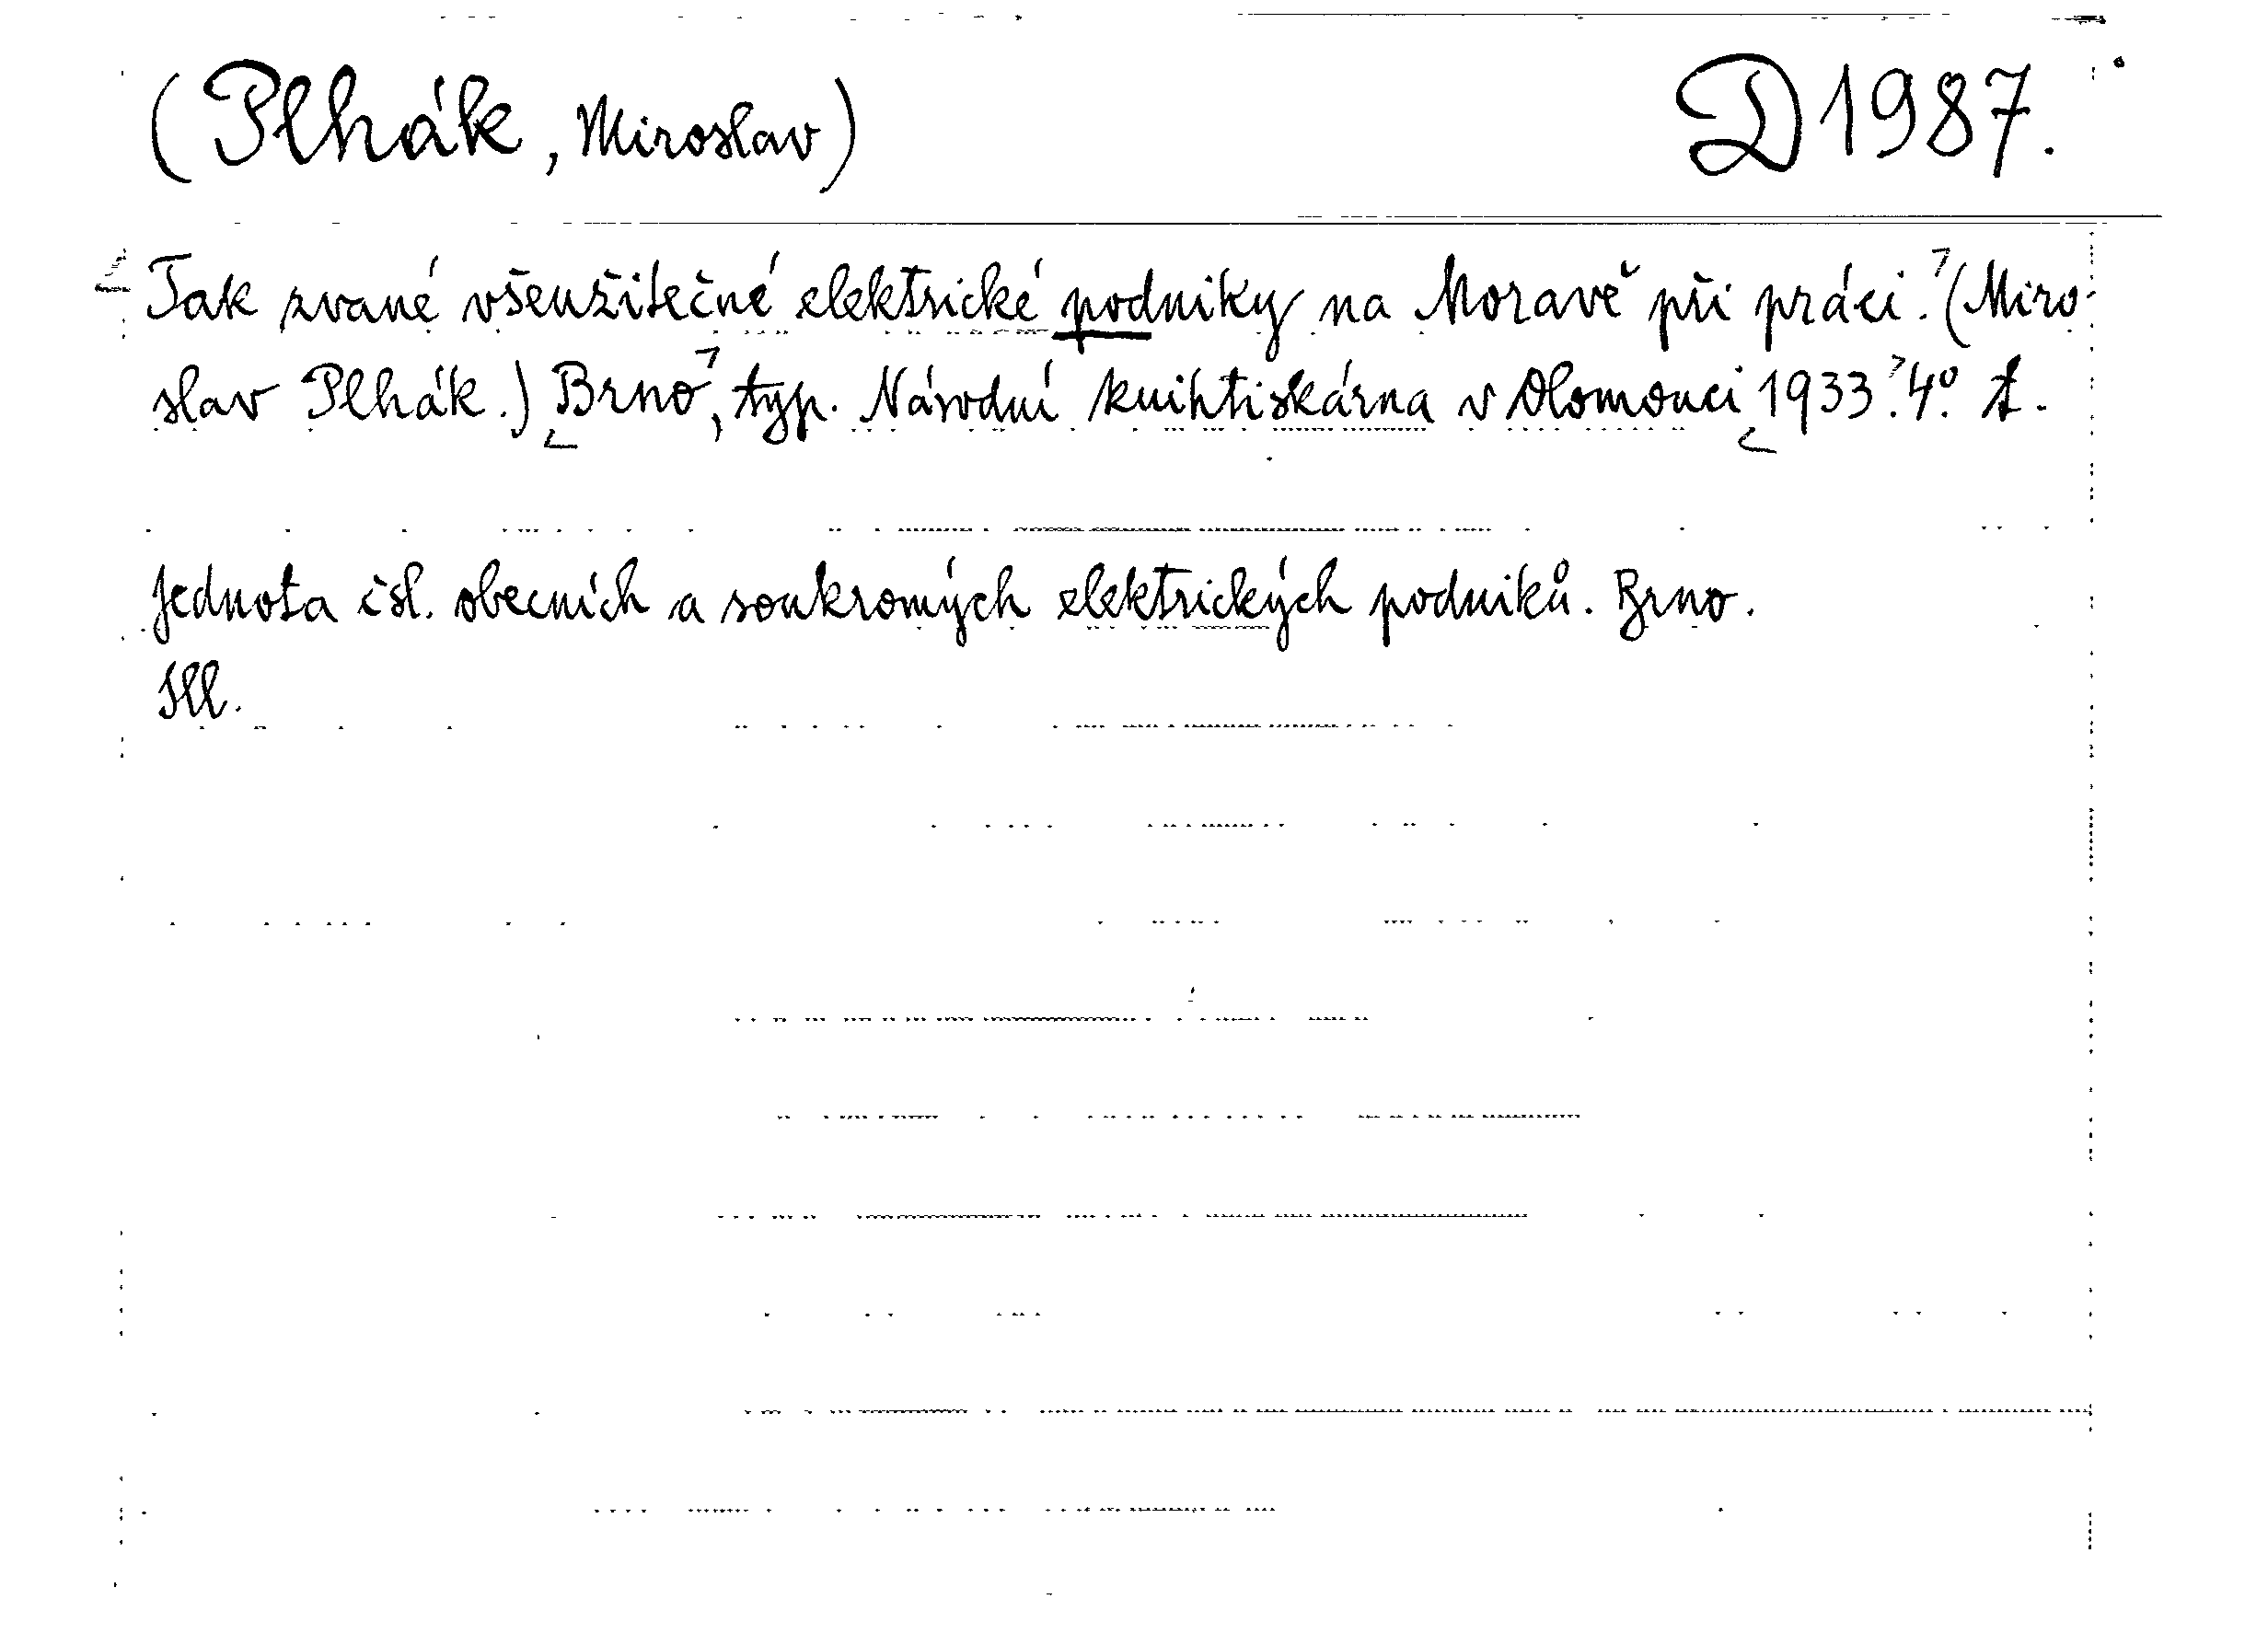 (Plhák, Miroslav) D 1987.
Tak zvané všeužitečné elektrické podniky na Moravě při práci. (Miro-
slav Plhák.) Brno, typ. Národní knihtiskárna v Olomouci 1933. 4° A.
Jednota čsl. obecních a soukromých elektrických podniků. Brno.
Ill.